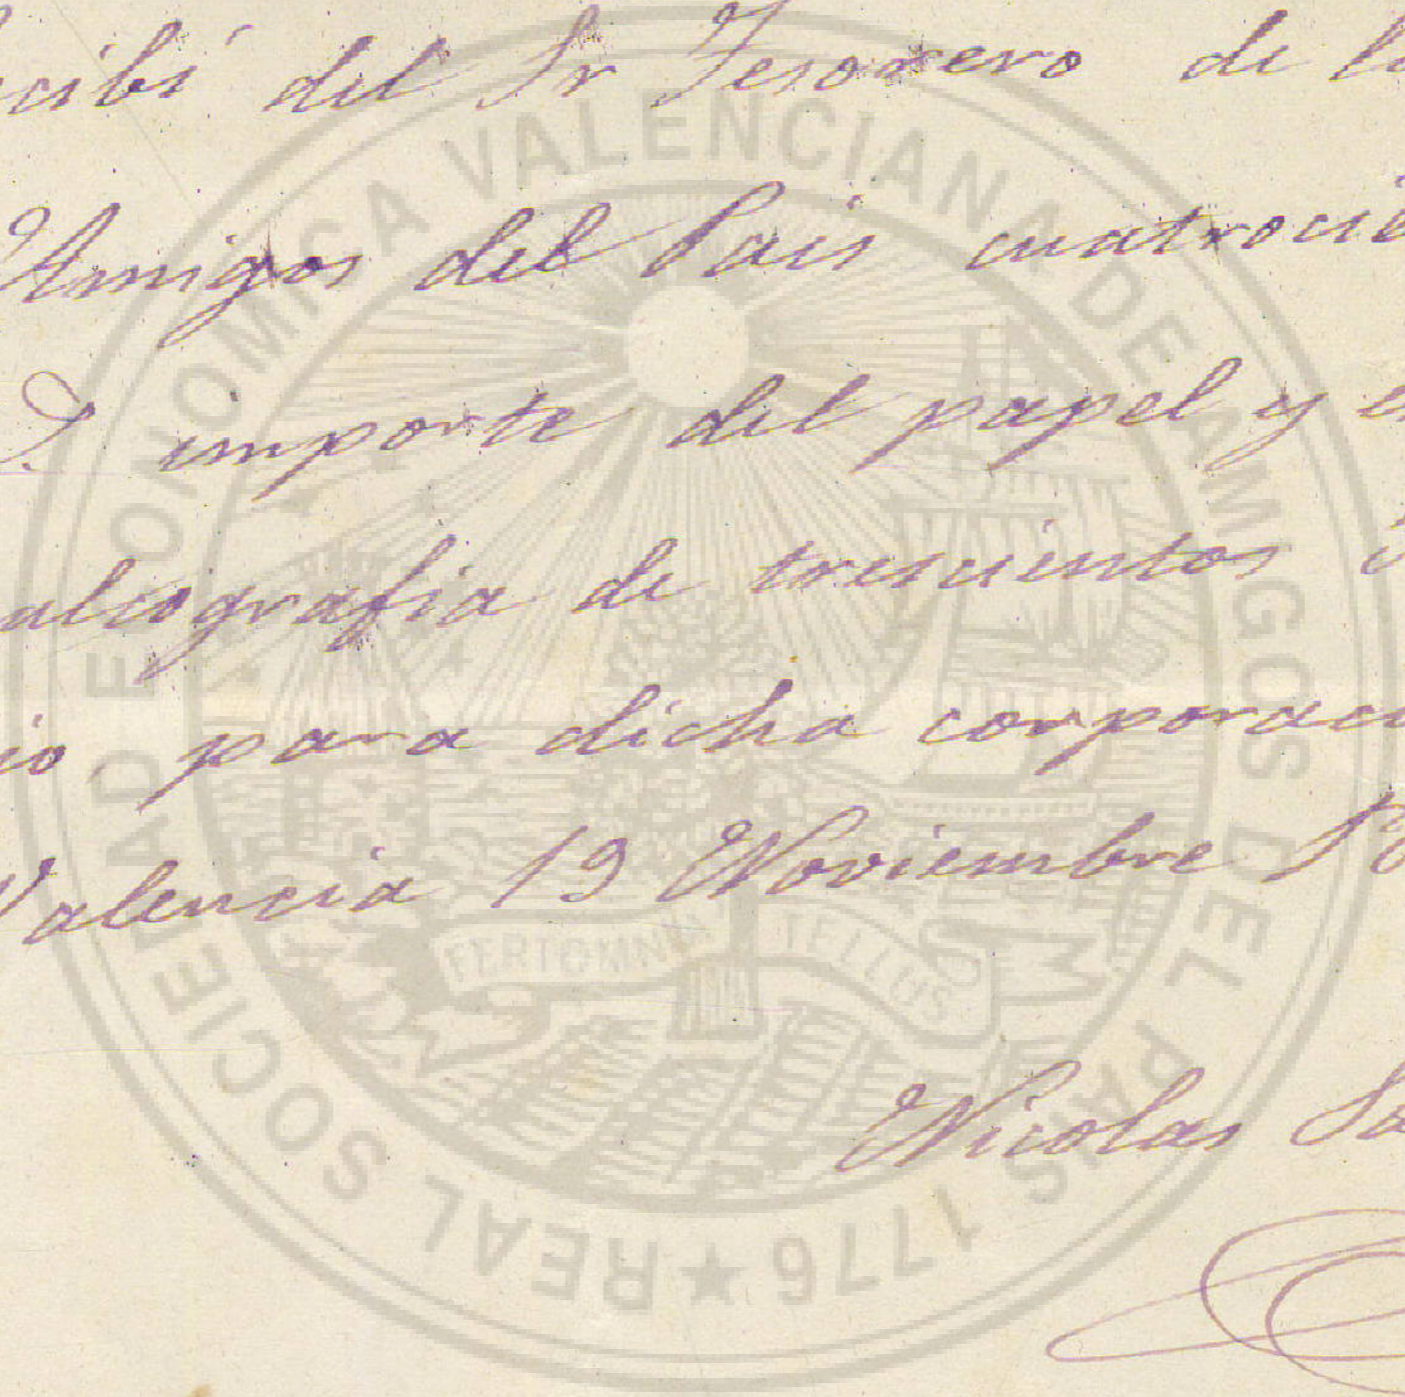 cibi del Sr Tesorero de la
Amigos del Pais cuatrocie
importe del papel y e
alcografia de trescientos
io para dicha corporaci
Valencia 19 Noviembre 18
Nicolas
REAL SOCIEDAD ECONOMICA VALENCIANA DE AMIGOS DEL PAIS 1776
FERT OMNIA TELLUS